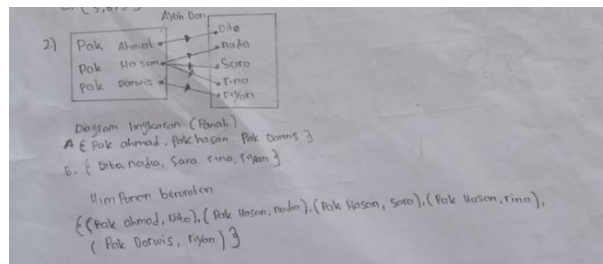 Ayah Dari
2) Pak Ahmad Dito
nadia
Pak Hasan Sara
Pak Darwis rina
riyan
Diagram lingkaran (Panah)
A { Pak ahmad, Pak hasan, Pak Darwis }
B. { Dito, nadia, Sara, rina, riyan }
Himpunan berurutan
{(Pak ahmad, Dito), (Pak Hasan, nadia), (Pak Hasan, Sara), (Pak Hasan, rina),
( Pak Darwis, riyan) }